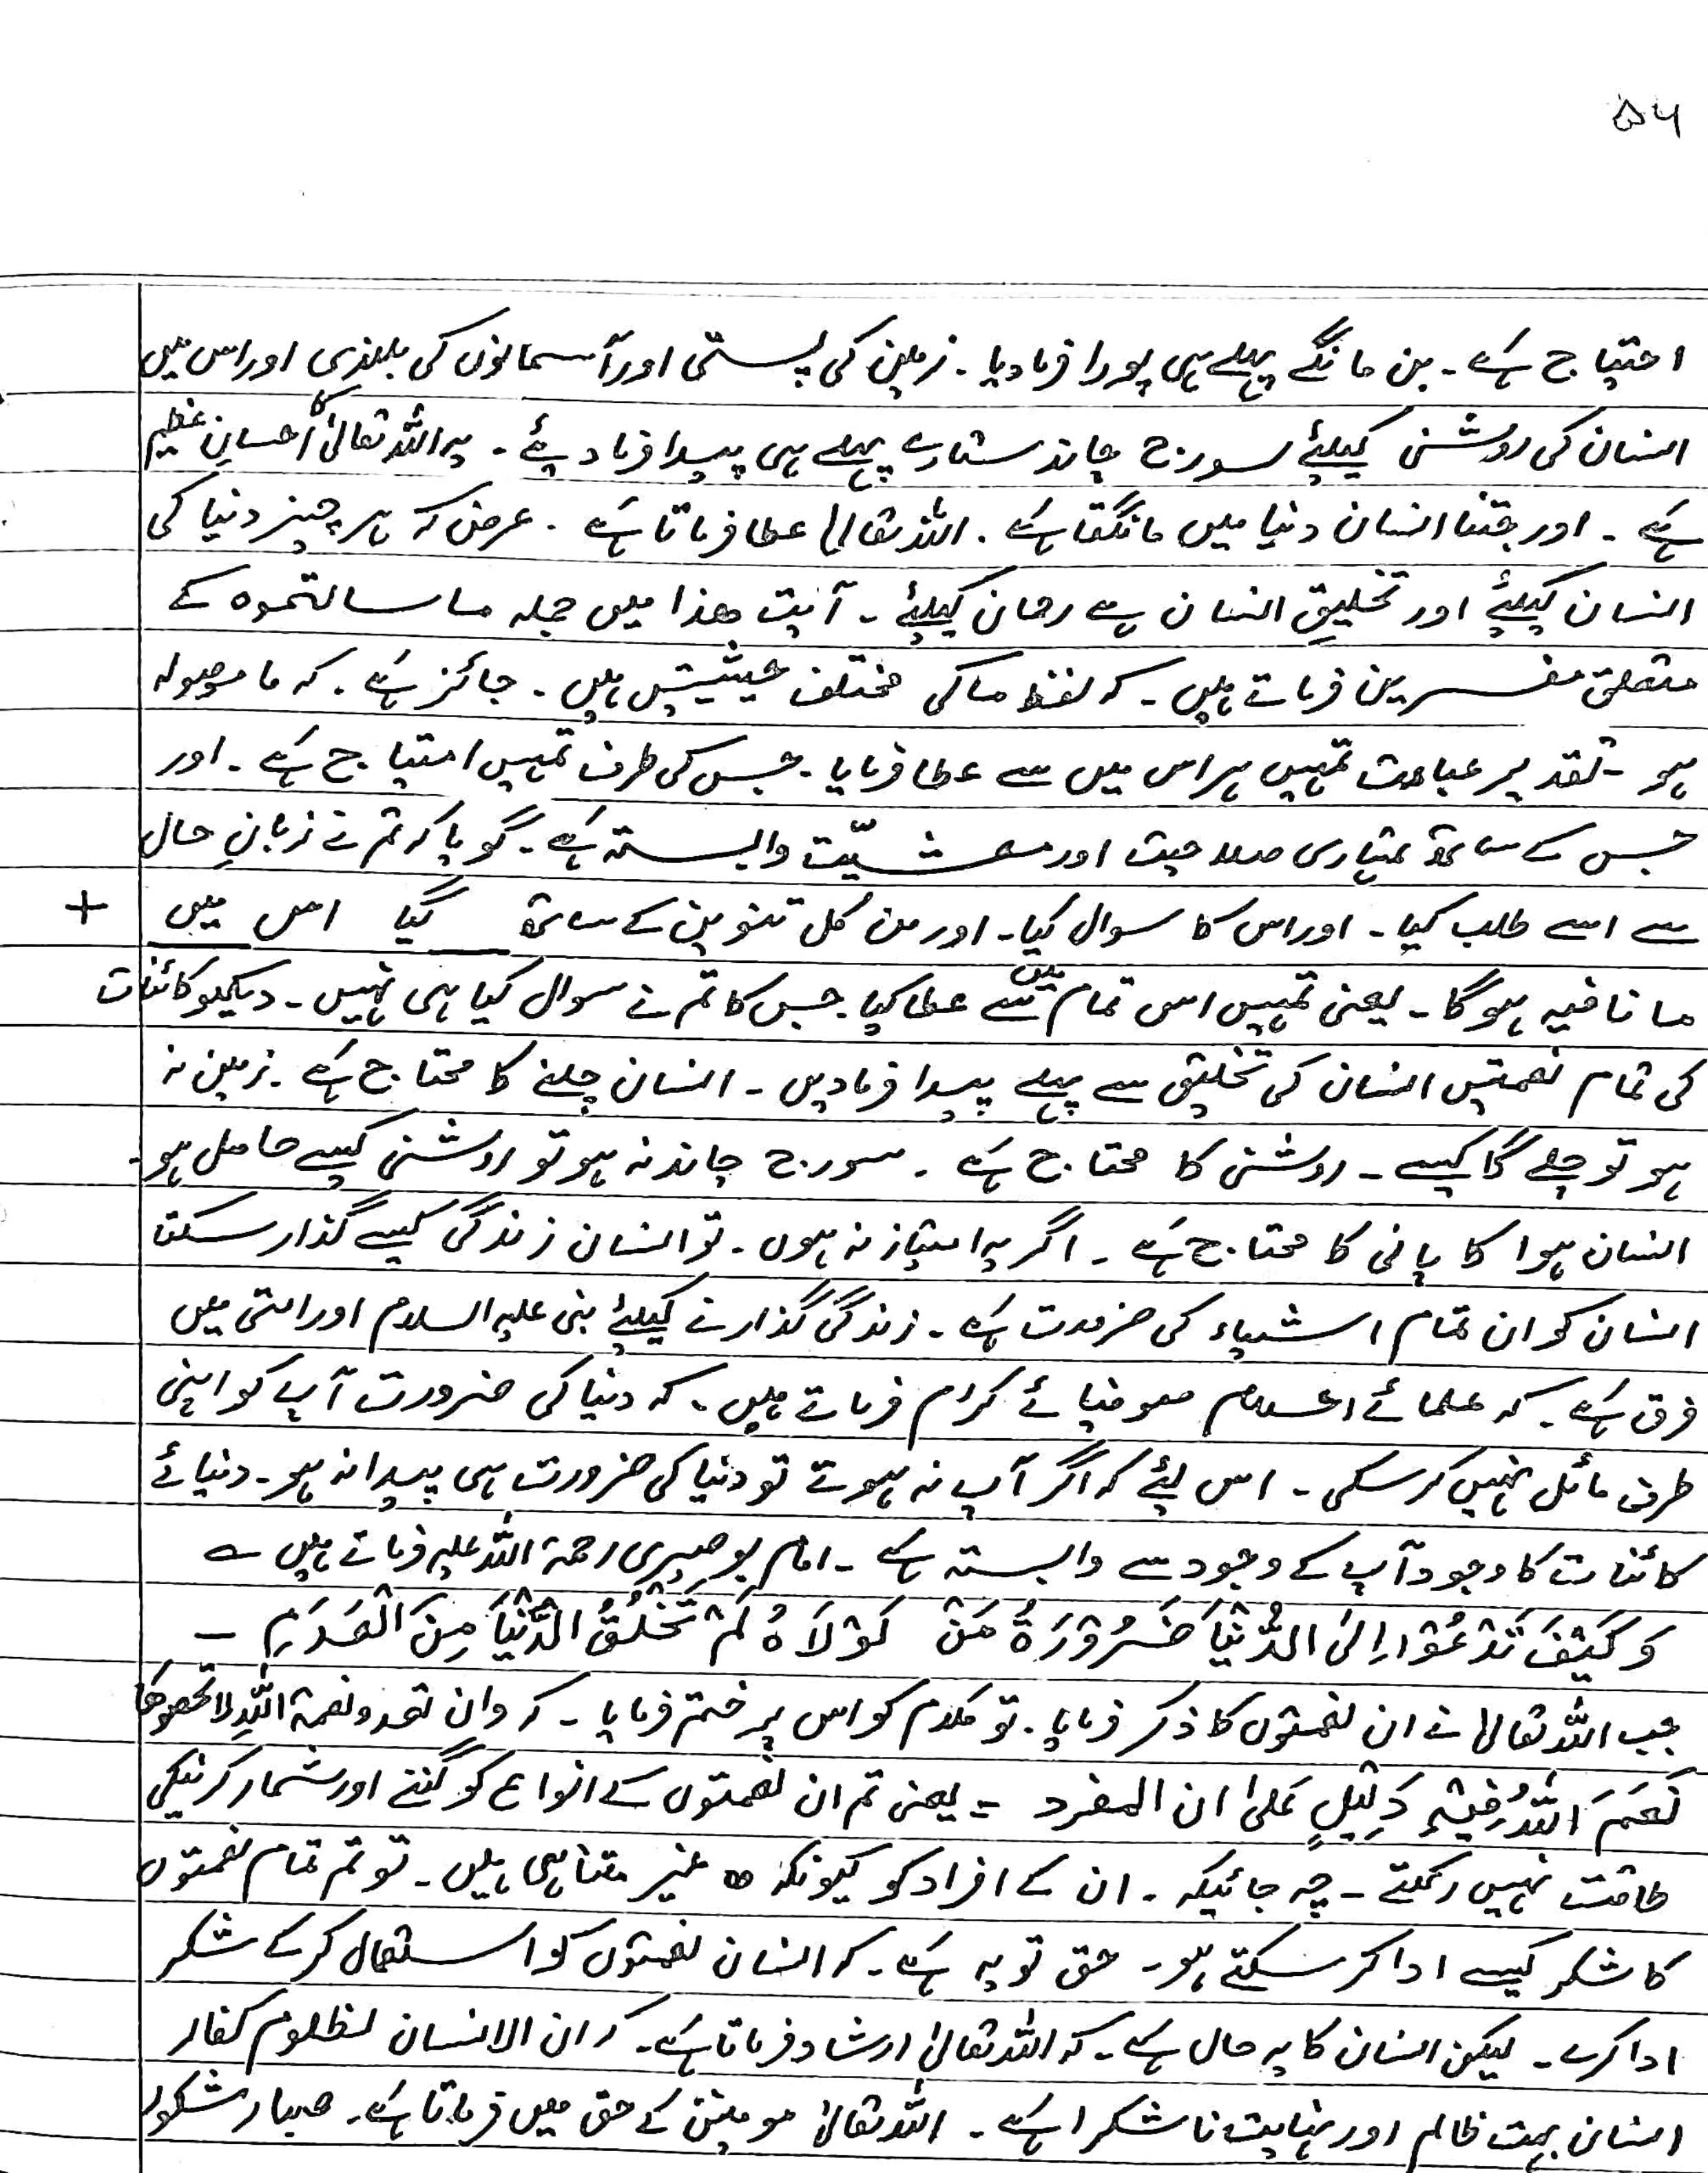 ۵۶
احتیاج ہے ۔ بن مانگے پہلے ہی پورا فرما دیا ۔ زمین کی پستی اور آسمانوں کی بلندی اور اس میں
انسان کی روشنی کیلئے سورج چاند ستارے پہلے ہی پیدا فرما دیئے ۔ یہ اللہ تعالیٰ کا احسانِ عظیم
ہے ۔ اور جتنا انسان دنیا میں مانگتا ہے ۔ اللہ تعالیٰ عطا فرماتا ہے ۔ غرض کہ ہر چیز دنیا کی
انسان کیلئے اور تخلیقِ انسان ہے رحمان کیلئے ۔ آیت ھذا میں جملہ ما سالتموہ کے
متعلق مفسرین فرماتے ہیں ۔ کہ لفظ ما کی مختلف حیثیتیں ہیں ۔ جائز ہے ۔ کہ ما موصولہ
ہو ۔ تقدیر عبارت تمہیں ہر اس میں سے عطا فرمایا ۔ جس کی طرف تمہیں احتیاج ہے ۔ اور
جس کے ساتھ تمہاری صلاحیت اور معشیّت وابستہ ہے ۔ گویا کہ تم نے زبانِ حال
سے اسے طلب کیا ۔ اور اس کا سوال کیا ۔ اور من کل تنوین کے ساتھ گیا اس میں +
ما نافیہ ہوگا ۔ یعنی تمہیں اس تمام میں سے عطا کیا جس کا تم نے سوال کیا ہی نہیں ۔ دیکھو کائنات
کی تمام نعمتیں انسان کی تخلیق سے پہلے پیدا فرما دیں ۔ انسان چلنے کا محتاج ہے ۔ زمین نہ
ہو تو چلے گا کیسے ۔ روشنی کا محتاج ہے ۔ سورج چاند نہ ہو تو روشنی کیسے حاصل ہو ۔
انسان ہوا کا پانی کا محتاج ہے ۔ اگر یہ امتیاز نہ ہوں ۔ تو انسان زندگی کیسے گذار سکتا
انسان کو ان تمام اشیاء کی ضرورت ہے ۔ زندگی گذارنے کیلئے نبی علیہ السلام اور امتی میں
فرق ہے ۔ کہ علمائے اعلام صوفیائے کرام فرماتے ہیں ۔ کہ دنیا کی ضرورت آپ کو اپنی
طرف مائل نہیں کر سکی ۔ اس لیئے کہ اگر آپ نہ ہوتے تو دنیا کی ضرورت ہی پیدا نہ ہو ۔ دنیائے
کائنات کا وجود آپ کے وجود سے وابستہ ہے ۔ امام بوصیری رحمۃ اللہ علیہ فرماتے ہیں ؎
وَکَیْفَ تَدْعُوْا اِلیٰ الدُّنْیَا ضَرُوْرَۃُ مَنْ لَوْلَاہُ لَمْ تَخْلُقُ الدُّنْیَا مِنَ الْعَدَمِ ۔
جب اللہ تعالیٰ نے ان نعمتوں کا ذکر فرمایا ۔ تو کلام کو اس پر ختم فرمایا ۔ کہ وان تعدو نعمۃ اللہِ لا تحصوھا
نَعَمَ اللہُ فِیْہِ دَلِیْلٍ عَلیٰ ان المفرد = یعنی تم ان نعمتوں کے انواع کو گننے اور شمار کرنیکی
طاقت نہیں رکھتے ۔ چہ جائیکہ ۔ ان کے افراد کو کیونکہ وہ غیر متناہی ہیں ۔ تو تم تمام نعمتوں
کا شکر کیسے ادا کر سکتے ہو ۔ حق تو یہ ہے ۔ کہ انسان نعمتوں کو استعمال کر کے شکر
ادا کرے ۔ لیکن انسان کا یہ حال ہے ۔ کہ اللہ تعالیٰ ارشاد فرماتا ہے ۔ کہ ان الانسان لظلوم کفار
انسان بہت ظالم اور نہایت ناشکرا ہے ۔ اللہ تعالیٰ مومنین کے حق میں فرماتا ہے ۔ صبار شکور